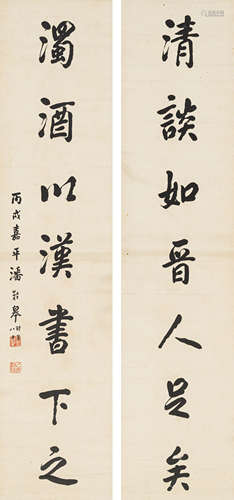 清談如晉人足矣
濁酒以漢書下之
丙戌嘉平潘齡皋